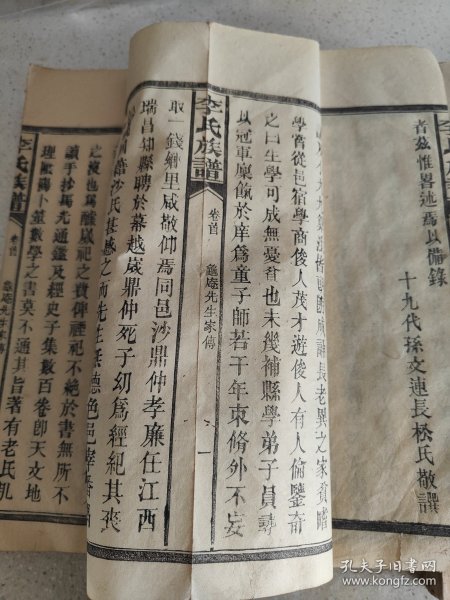 者茲惟畧述焉以備錄
十九代孫文連長松氏敬譔
李氏族譜
長老異之家貧嗜
學嘗從邑宿學商俊人茂才遊俊人有人倫鑒奇
之曰生學可成無憂貧也未幾補縣學弟子員尋
以冠軍廩餼於庠為童子師若干年束脩外不妄
李氏族譜
卷首
龜庵先生家傳
一
取一錢鄉里咸敬仰焉同邑沙鼎仲孝廉任江西
瑞昌知縣聘於幕越歲鼎仲死子幼為經紀其喪
沙氏甚感之而先生無德色邑宰
李氏族譜
卷首
龜庵先生家傳
讀手抄馬光通鑑及經史子集數百卷卽天文地
卜筮數學之書莫不通其旨著有老氏
孔夫子旧书网
www.kongfz.com